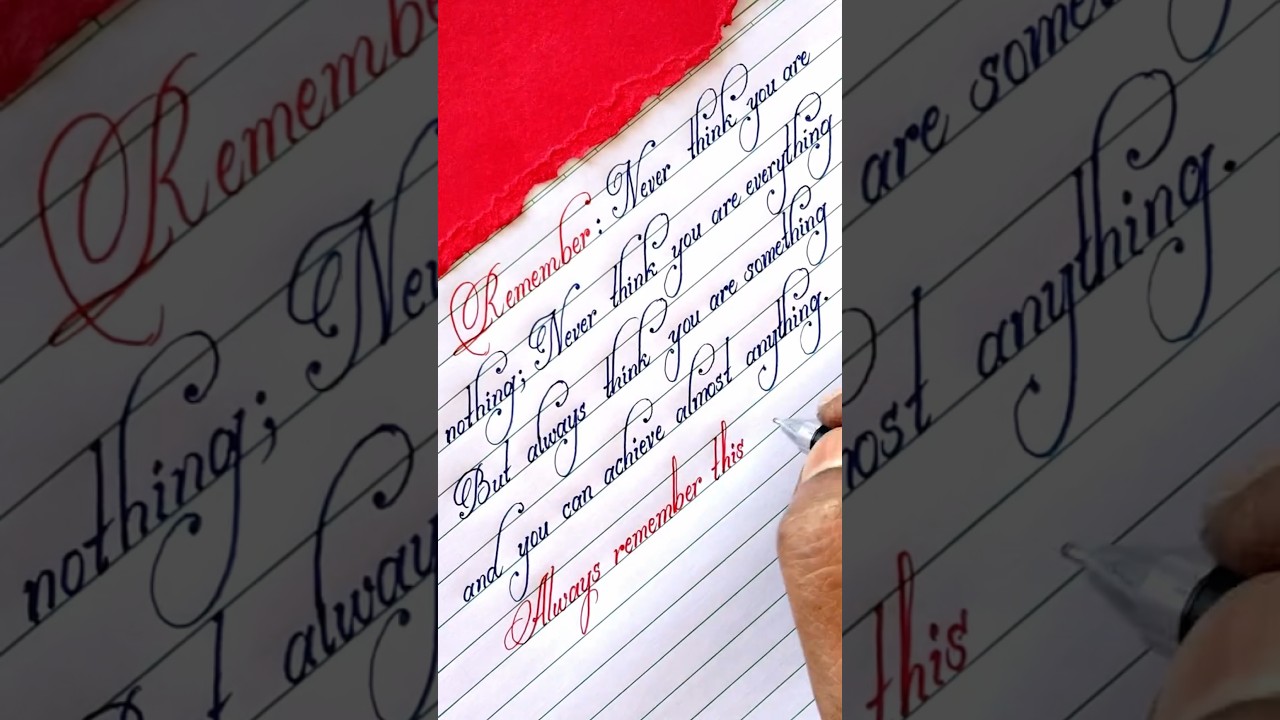 Remember: Never think you are
nothing; Never think you are everything
But always think you are something
and you can achieve almost anything.
Always remember this